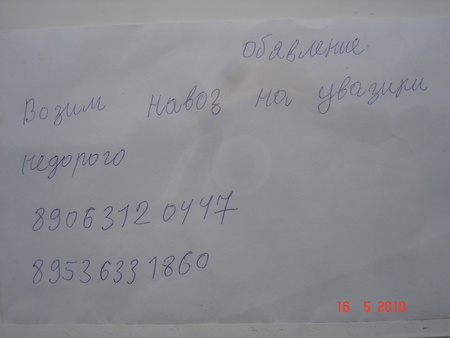 обявление
Возим навоз на увазики
недорого
89063120447
89536331860
16 5 2010